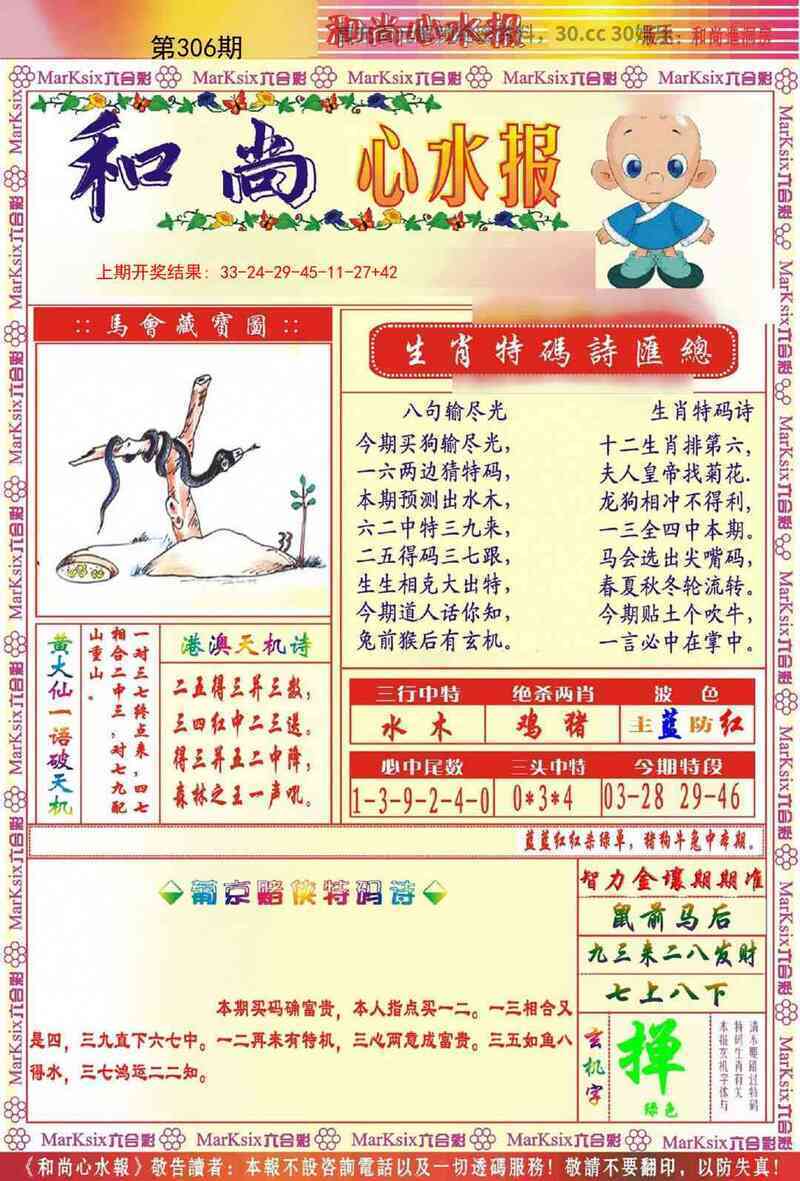 和尚心水报
料，30.cc 30娱乐
第306期
MarKsix六合彩 MarKsix六合彩 MarKsix六合彩 MarKsix六合彩 MarKsix六合彩
和尚 心水报
上期开奖结果：33-24-29-45-11-27+42
:: 馬會藏寶圖 ::
生肖特碼詩匯總
八句输尽光
今期买狗输尽光，
一六两边猜特码，
本期预测出水木，
六二中特三九来，
二五得码三七跟，
生生相克大出特，
今期道人话你知，
兔前猴后有玄机。
生肖特码诗
十二生肖排第六，
夫人皇帝找菊花.
龙狗相冲不得利，
一三全四中本期。
马会选出尖嘴码，
春夏秋冬轮流转。
今期贴士个吹牛，
一言必中在掌中。
黄大仙一语破天机
一对三七终点来，四七
相合二中三，对七九配
山重山。
港澳天机诗
二五得三并三数，
三四红中二三送。
得三并五二中降，
森林之王一声吼。
三行中特 绝杀两肖 波色
水木 鸡猪 主蓝防红
必中尾数 三头中特 今期特段
1-3-9-2-4-0 0*3*4 03-28 29-46
蓝蓝红红杀绿单，猪狗牛兔中本期。
葡京赌侠特码诗
本期买码确富贵，本人指点买一二。一三相合又
是四，三九直下六七中。一二再来有特机，三心两意成富贵。三五如鱼八
得水，三七鸿运二二知。
智力金壤期期准
鼠前马后
九三来二八发财
七上八下
玄机字
掸
绿色
本报玄机字体与
特码生肖有关
请不要错过特码
MarKsix六合彩 MarKsix六合彩 MarKsix六合彩 MarKsix六合彩 MarKsix六合彩
《和尚心水報》敬告讀者：本報不設咨詢電話以及一切透碼服務！敬請不要翻印，以防失真！